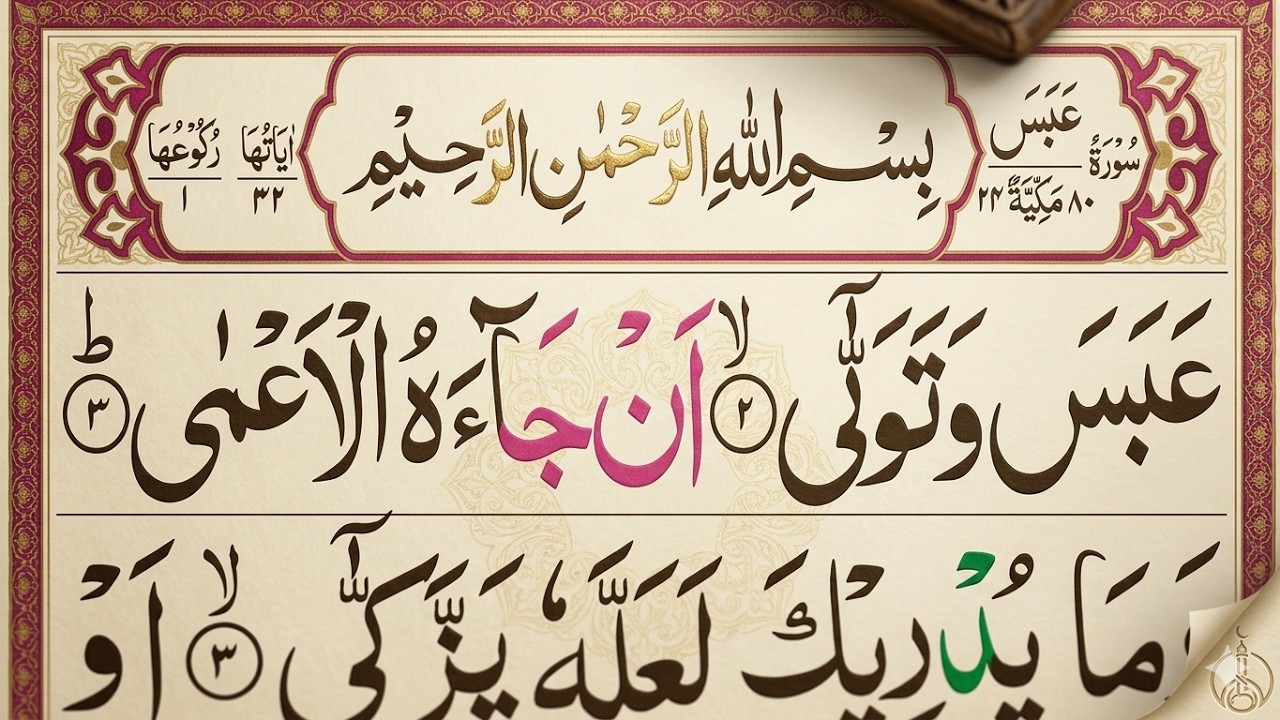 سُوْرَةٌ عَبَسَ
٨٠ مَكِّيَّةٌ ٢٤
بِسْمِ اللّٰهِ الرَّحْمٰنِ الرَّحِيْمِ
اٰيَاتُهَا ٣٢
رُكُوْعُهَا ١
عَبَسَ وَتَوَلّٰٓى ۙ ٢ اَنْ جَآءَهُ الْاَعْمٰى ؕ ٣
وَمَا يُدْرِيْكَ لَعَلَّهٗ يَزَّكّٰٓى ۙ ٣ اَوْ